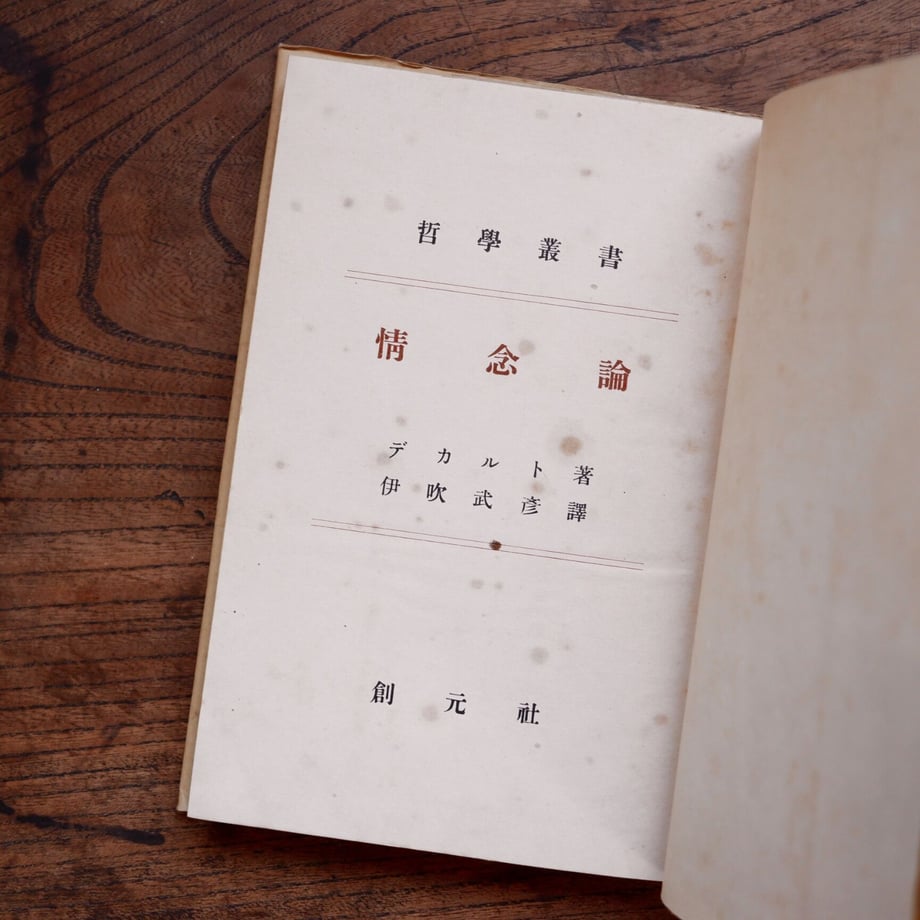 哲學叢書
情念論
デカルト著
伊吹武彥譯
創元社